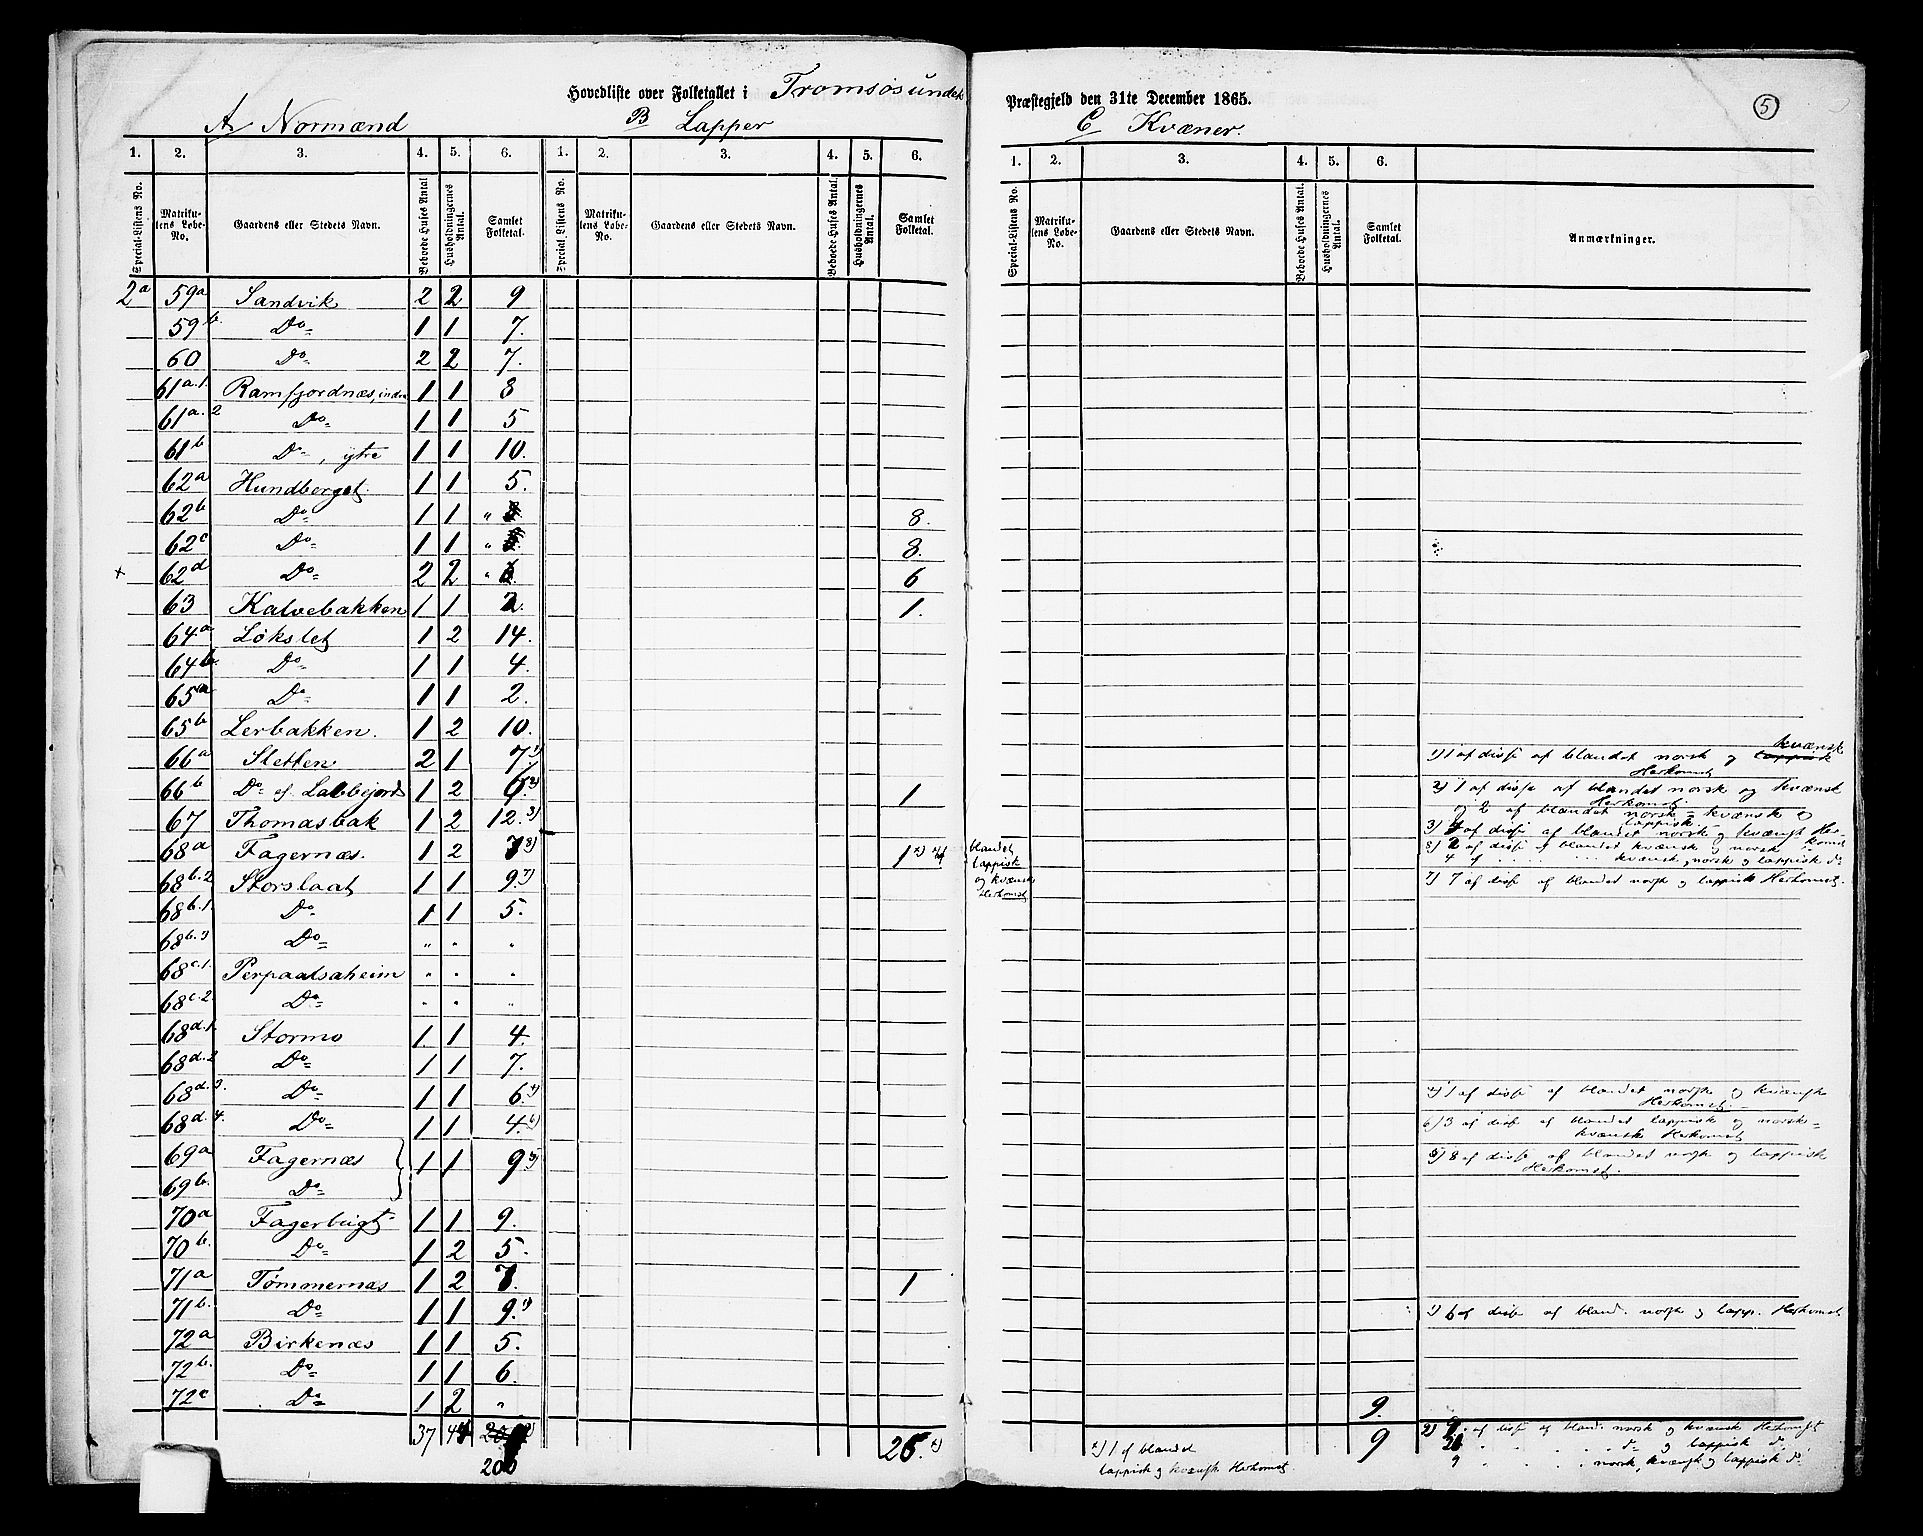 Hovedliste over Folketallet i Tromsøsundets Præstegjeld den 31te December 1865.
5
A Normænd B Lapper C Kvæner.
1. 2. 3. 4. 5. 6. 1. 2. 3. 4. 5. 6. 1. 2. 3. 4. 5. 6.
Special-Listens No. Matrikulens Løbe-No. Gaardens eller Stedets Navn. Beboede Huses Antal Husholdningernes Antal. Samlet Folketal. Special-Listens No. Matrikulens Løbe-No. Gaardens eller Stedets Navn. Beboede Huses Antal. Husholdningernes Antal. Samlet Folketal. Special-Listens No. Matrikulens Løbe-No. Gaardens eller Stedets Navn. Beboede Huses Antal. Husholdningernes Antal. Samlet Folketal. Anmærkninger.
2a 59a Sandvik 2 2 9
59b. Do 1 1 7.
60 Do 2 2 7.
61a.1. Ramfjordnæs, indre 1 1 8
61a.2 Do 1 1 5
61b Do, ytre 1 1 10.
62a Hundberget. 1 1 5.
62b Do 1 1 " 8.
62c Do 1 1 " 8.
+ 62d Do 2 2 " 6
63 Kalvebakken 1 1 2. 1.
64a Løkslet 1 2 14.
64b. Do 1 1 4.
65a Do 1 1 2.
65b Lerbakken. 1 2 10.
66a Sletten 2 1 7.1) 1) 1 af disse af blandet norsk og lappisk kvænsk Herkomst
66b Do el. Labbejord 1 2 6.2) 1 2) 1 af disse af blandet norsk og kvænsk Herkomst. og 2 af blandet norsk-kvænsk og lappisk
67 Thomasbak 1 2 12.3) 3) 4 af disse af blandet norsk og kvænsk Herkomst
68a Fagernæs. 1 2 78) 1 x) blandet lappisk og kvænsk Herkomst 8) 2 af disse af blandet kvænsk og norsk
4 af " " kvænsk, norsk og lappisk do
68b.2 Storslaat 1 1 9.7) 7) 7 af disse af blandet norsk og lappisk Herkomst.
68b.1. Do 1 1 5.
68b.3 Do " " "
68c.1. Perpaalsaheim " " "
68c.2. Do " " "
68d.1. Stormo 1 1 4.
68d.2 Do 1 1 7.
68d.3. Do 1 1 6.4) 4) 1 af disse af blandet norsk og kvænsk Herkomst.
68d.4. Do 1 1 4.6) 6) 3 af disse af blandet lappisk og norsk-kvænsk Herkomst
69a Fagernæs 1 1 95) 5) 8 af disse af blandet norsk og lappisk Herkomst.
69b. Do
70a Fagerbugt 1 1 9.
70b. Do 1 2 5.
71a Tømmernæs 1 2 7. 1
71b. Do 1 1 9.1) 1) 6 af disse af bland. norsk og lapp. Herkomst
72a Birkenæs 1 1 5.
72b. Do 1 1 6.
72c Do 1 2 " 9.
37 44 200 26.x) x) 1 af blandet lappisk og kvænsk Herkomst. 9
2) 9 af disse af bland. norsk og kvænsk Herkomst
21 " " " do og lappisk do
9 " " " norsk, kvænsk og lappisk do